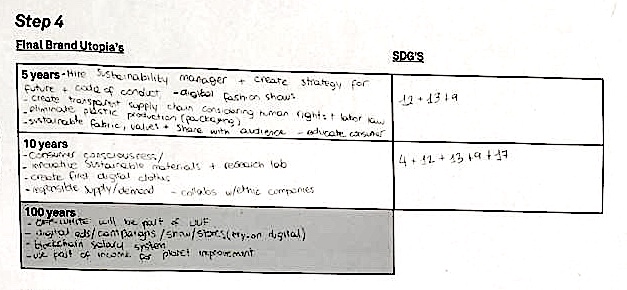 Step 4
Final Brand Utopia's
SDG'S
5 years - Hire Sustainability manager + create strategy for
future + code of conduct - digital fashion shows
- create transparent supply chain considering human rights + labor law
- eliminate plastic production (packaging)
- sustainable fabric, values + share with audience - educate consumer
12 + 13 + 9
10 years
- Consumer consciousness/
- innovative sustainable materials + research lab
- create first digital clothes
- responsible supply/demand - collabs w/ethic companies
4 + 12 + 13 + 9 + 17
100 years
- OFF-WHITE will be part of
- digital ads/campaigns/show/stores (try-on digital)
- blockchain salary system
- use part of income for planet improvement